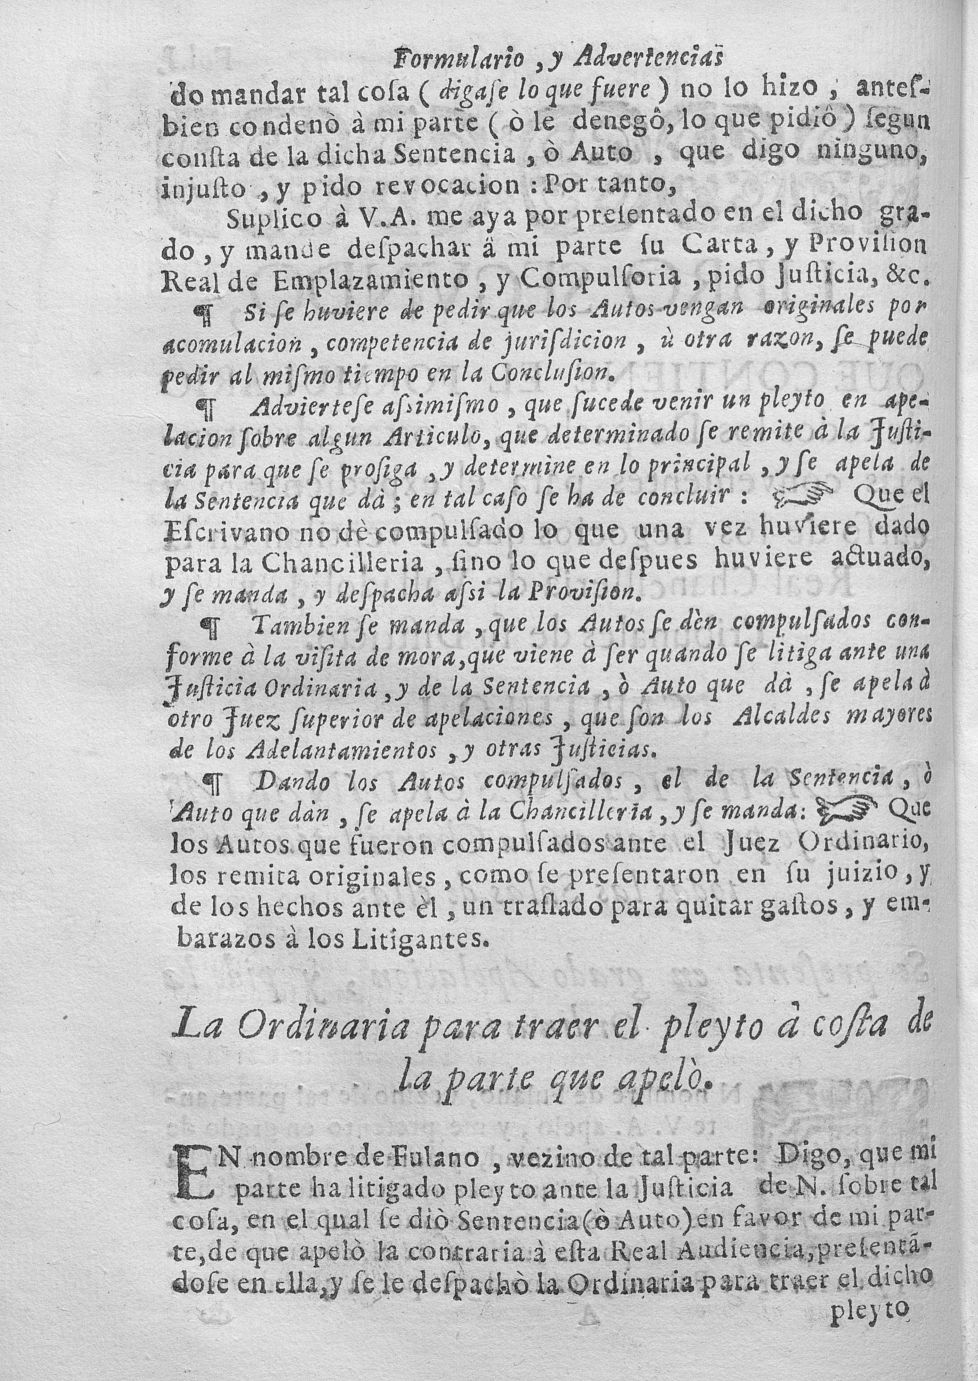 Formulario, y Advertencias
do mandar tal coſa ( digaſe lo que fuere ) no lo hizo , anteſ-
bien condenò à mi parte ( ò le denegô, lo que pidiô ) ſegun
conſta de la dicha Sentencia , ò Auto , que digo ninguno,
injuſto , y pido revocacion : Por tanto,
Suplico à V.A. me aya por preſentado en el dicho gra-
do , y mande deſpachar â mi parte ſu Carta , y Proviſion
Real de Emplazamiento , y Compulſoria , pido Juſticia, &c.
¶ Si ſe huviere de pedir que los Autos vengan originales por
acomulacion , competencia de juriſdicion , ù otra razon, ſe puede
pedir al miſmo tiempo en la Concluſion.
¶ Advierteſe aſsimiſmo , que ſucede venir un pleyto en ape-
lacion ſobre algun Articulo, que determinado ſe remite à la Juſti-
cia para que ſe proſiga , y determine en lo principal , y ſe apela de
la Sentencia que dà ; en tal caſo ſe ha de concluir : ☞ Que el
Eſcrivano no dè compulſado lo que una vez huviere dado
para la Chancilleria , ſino lo que deſpues huviere actuado,
y ſe manda , y deſpacha aſsi la Proviſion.
¶ Tambien ſe manda , que los Autos ſe dèn compulſados con-
forme à la viſita de mora, que viene à ſer quando ſe litiga ante una
Juſticia Ordinaria, y de la Sentencia , ò Auto que dà , ſe apela à
otro Juez ſuperior de apelaciones , que ſon los Alcaldes mayores
de los Adelantamientos , y otras Juſticias.
¶ Dando los Autos compulſados , el de la Sentencia , ò
Auto que dàn , ſe apela à la Chancilleria , y ſe manda: ☞ Que
los Autos que fueron compulſados ante el Juez Ordinario,
los remita originales , como ſe preſentaron en ſu juizio , y
de los hechos ante èl , un traſlado para quitar gaſtos , y em-
barazos à los Litigantes.
La Ordinaria para traer el pleyto à coſta de
la parte que apelò.
EN nombre de Fulano , vezino de tal parte: Digo, que mi
parte ha litigado pleyto ante la Juſticia de N. ſobre tal
coſa, en el qual ſe diò Sentencia (ò Auto) en favor de mi par-
te, de que apelò la contraria à eſta Real Audiencia, preſentã-
doſe en ella, y ſe le deſpachò la Ordinaria para traer el dicho
pleyto